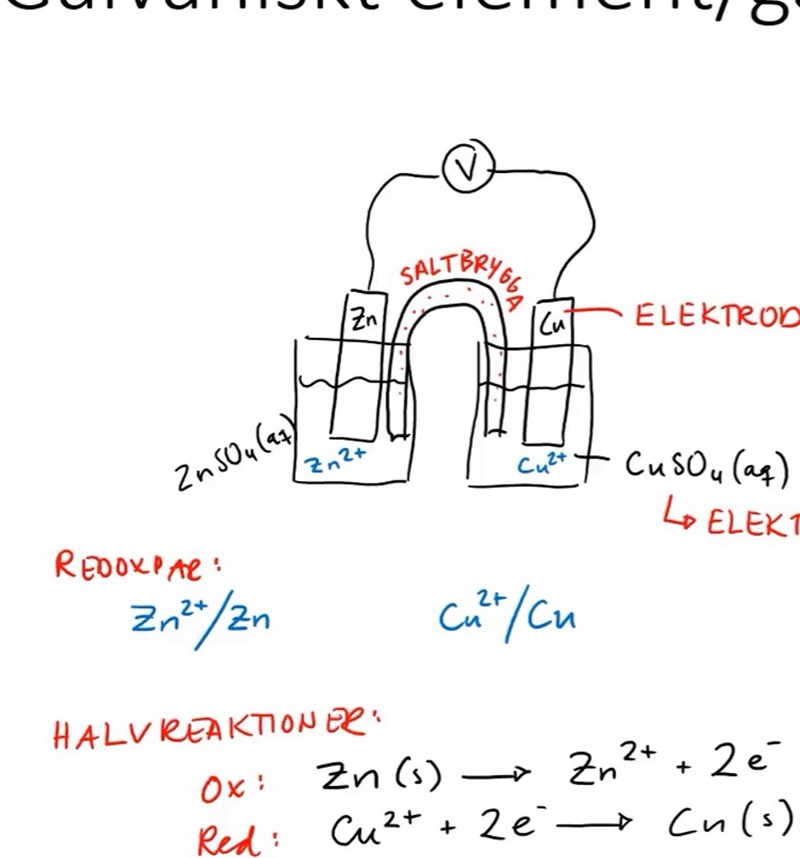 Galvaniskt element/g
V
SALTBRYGGA
Zn
Cu
ELEKTROD
ZnSO₄(aq)
Zn²⁺
Cu²⁺
CuSO₄(aq)
↳ ELEKT
REDOXPAR:
Zn²⁺/Zn
Cu²⁺/Cu
HALVREAKTIONER:
Ox: Zn(s) → Zn²⁺ + 2e⁻
Red: Cu²⁺ + 2e⁻ → Cu(s)